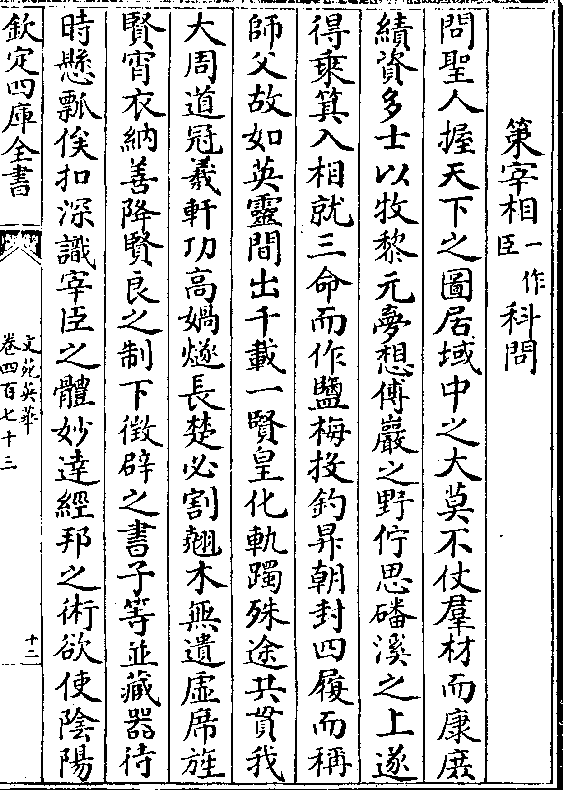 策宰相一作臣科問
問聖人握天下之圖居域中之大莫不仗羣材而康庶
績資多士以牧黎元夢想傅巖之野佇思磻溪之上遂
得乘箕入相就三命而作鹽梅投釣昇朝封四履而稱
師父故如英靈間出千載一賢皇化軌躅殊途共貫我
大周道冠羲軒功高媧燧長楚必割翹木無遺虛席旌
賢宵衣納善降賢良之制下徵辟之書子等並藏器待
時懸瓢俟扣深識宰臣之體妙達經邦之術欲使陰陽
欽定四庫全書
文苑英華
卷四百七十三
十二